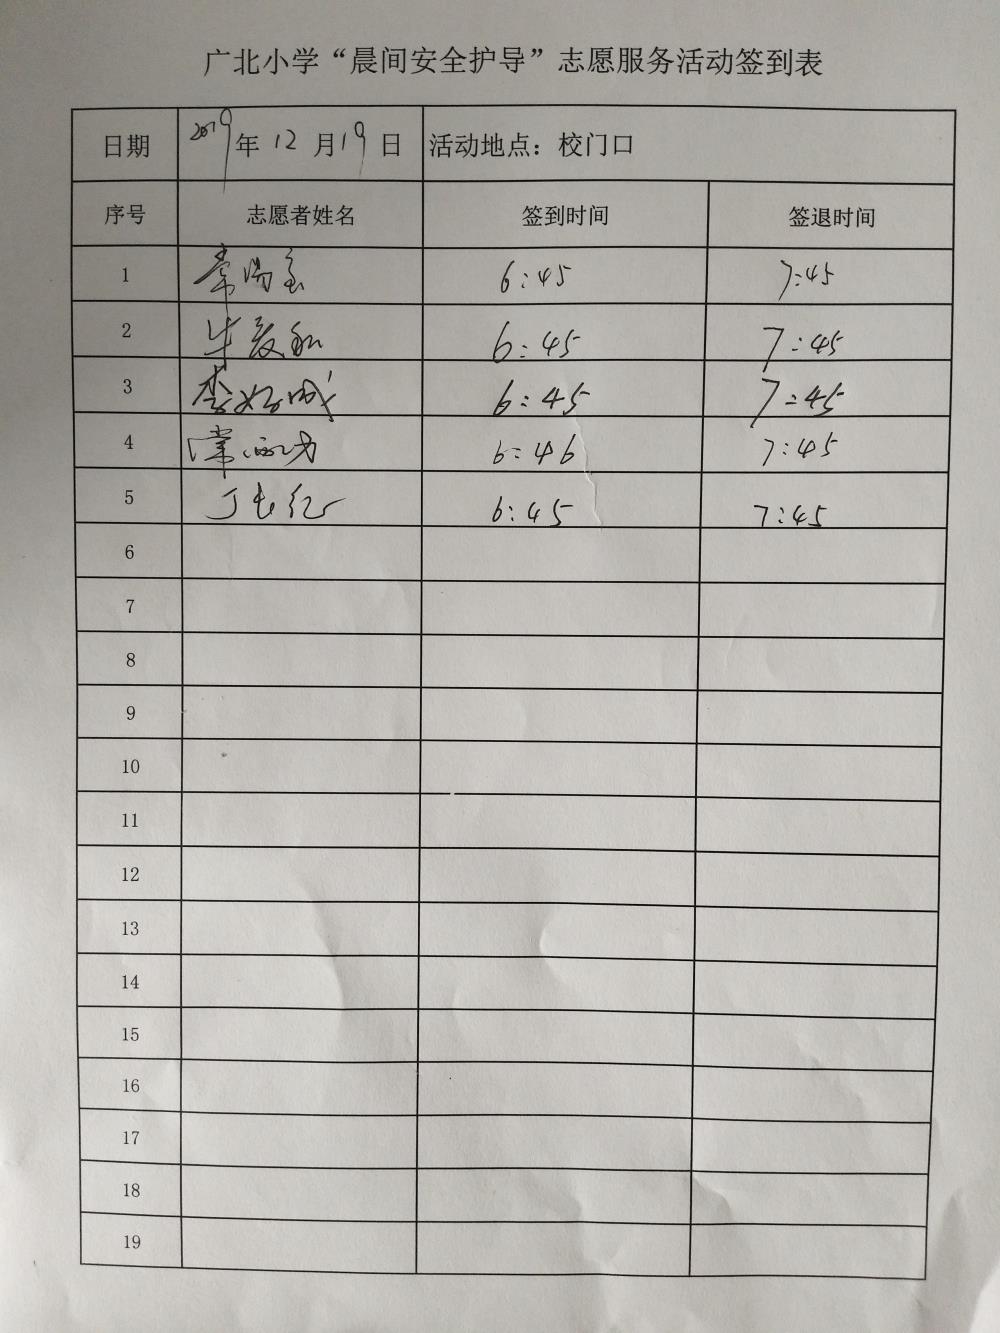 广北小学“晨间安全护导”志愿服务活动签到表
日期 2019年12月19日 活动地点：校门口
序号 志愿者姓名 签到时间 签退时间
1 6:45 7:45
2 6:45 7:45
3 李 6:45 7:45
4 常 6:46 7:45
5 丁 6:45 7:45
6
7
8
9
10
11
12
13
14
15
16
17
18
19